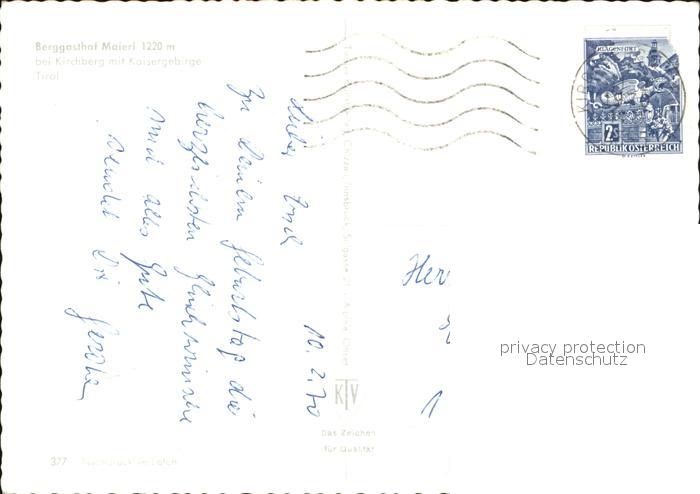 Berggasthof Maierl 1220 m
bei Kirchberg mit Kaisergebirge
Tirol
10. 2. 70
Lieber
Zu Deinem Geburtstag die
herzlichsten Glückwünsche
und alles Gute
Dir
Her
privacy protection
Datenschutz
KLAGENFURT
2S
REPUBLIK ÖSTERREICH
KTV
Das Zeichen
für Qualität
377 Nachdruck verboten